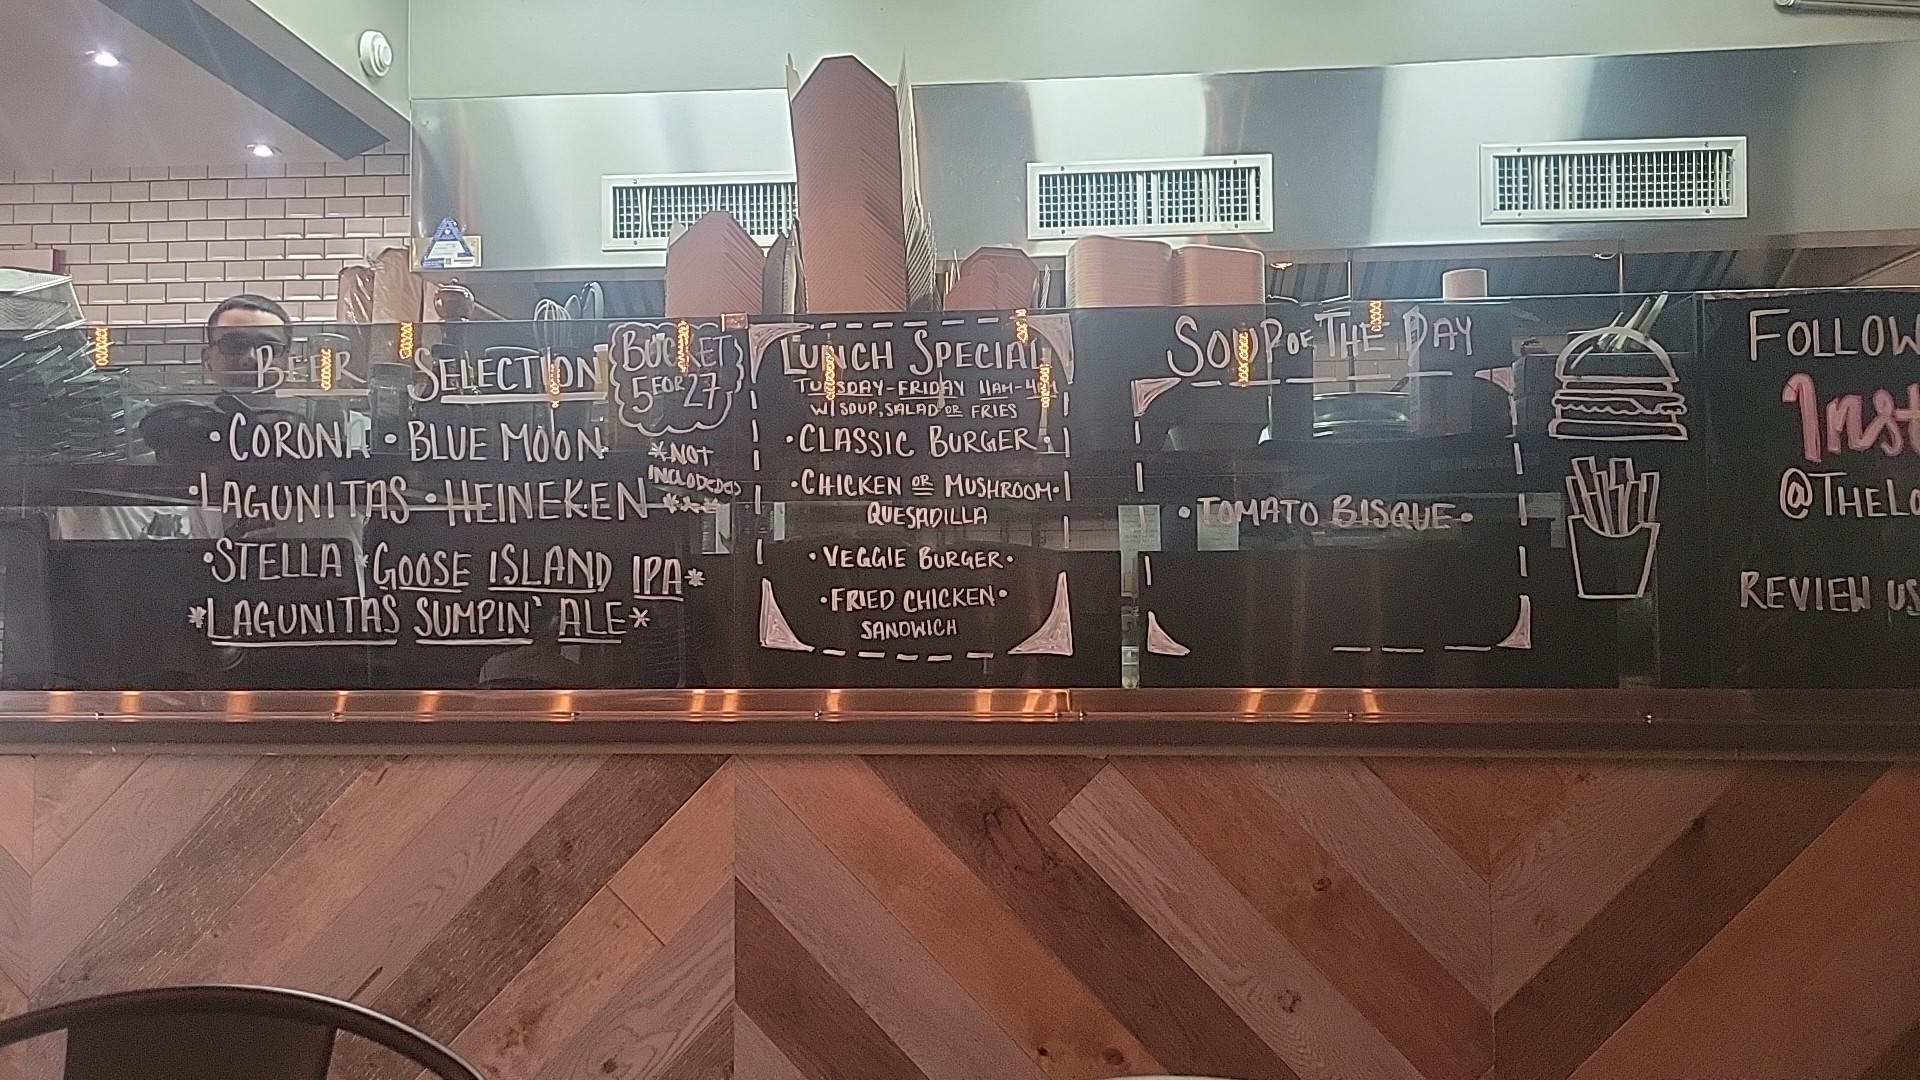 BEER SELECTION
BUCKET
5 FOR 27
*NOT
INCLUDED
***
•CORONA •BLUE MOON•
•LAGUNITAS •HEINEKEN
•STELLA *GOOSE ISLAND IPA*
*LAGUNITAS SUMPIN' ALE*
LUNCH SPECIAL
TUESDAY-FRIDAY 11AM-4PM
W/ SOUP, SALAD OR FRIES
•CLASSIC BURGER•
•CHICKEN OR MUSHROOM•
QUESADILLA
•VEGGIE BURGER•
•FRIED CHICKEN•
SANDWICH
SOUP OF THE DAY
•TOMATO BISQUE•
FOLLOW
Inst
@THELO
REVIEW US